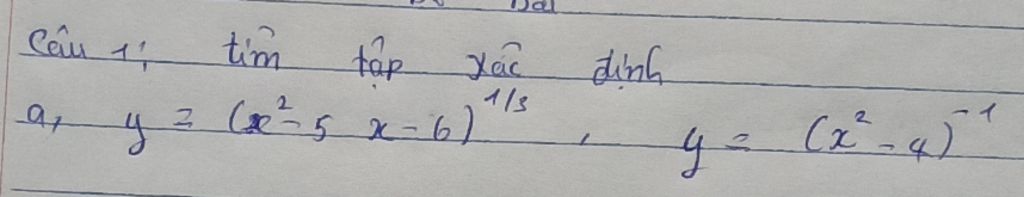 Câu 1; tìm tập xác định
a, y = (x² - 5 x - 6)^1/3 , y = (x² - 4)^-1